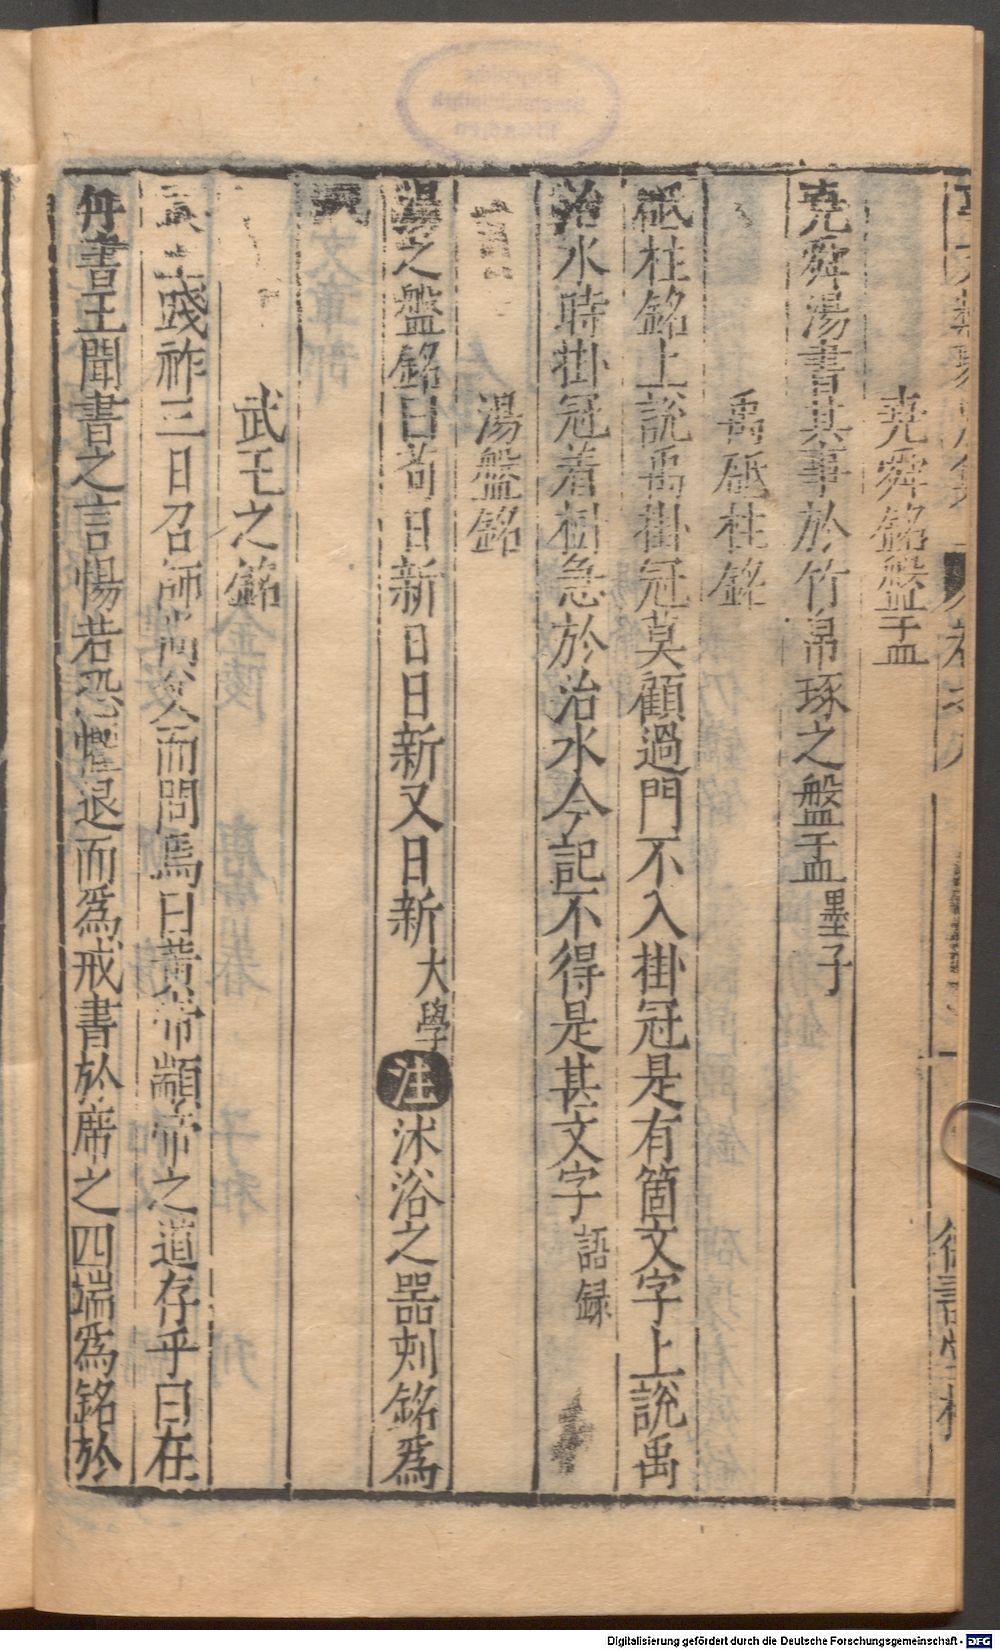 堯舜銘盤盂
堯舜湯書其事於竹帛琢之盤盂墨子
禹砥柱銘
砥柱銘上說禹掛冠莫顧過門不入掛冠是有箇文字上說禹
治水時掛冠着樹急於治水今記不得是甚文字語録
湯盤銘
湯之盤銘曰苟日新日日新又日新大學注沐浴之器刻銘爲
武王之銘
王踐祚三日召師尚父而問焉曰黃帝顓帝之道存乎曰在
丹書王聞書之言惕若恐懼退而爲戒書於席之四端爲銘於
Digitalisierung gefördert durch die Deutsche Forschungsgemeinschaft - DFG